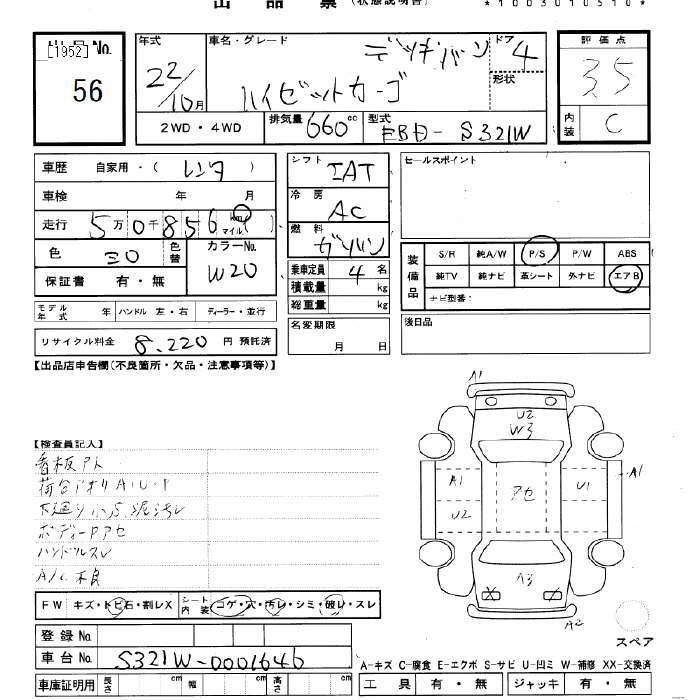 出品票 (状態説明書)
*1003010510*
出品No.
[1952]
56
年式
22/10月
車名・グレード
デッキバン
ハイゼットカーゴ
ドア 4
形状
評価点
3.5
内装
C
2WD・4WD
排気量 660cc
型式 EBD-S321W
車歴 自家用・(レンタ)
車検 年 月
走行 5万0千856 km マイル
色 シロ
色替
カラーNo.
W20
保証書 有・無
モデル年式 年 ハンドル 左・右 ディーラー・並行
リサイクル料金 8,220 円 預託済
シフト
IAT
冷房
AC
燃料
ガソリン
乗車定員 4 名
積載量 kg
総重量 kg
名変期限
月 日
セールスポイント
装備品
S/R 純A/W P/S P/W ABS
純TV 純ナビ 革シート 外ナビ エアB
ナビ型番:
後日品
【出品店申告欄(不良箇所・欠品・注意事項等)】
【検査員記入】
看板アト
荷台アオリA・U・P
下廻り小S 泥汚レ
ボディーPアセ
ハンドルスレ
A/C不良
A1
U2
W3
A1
アセ
U1
A1
U2
A3
A2
スペア
FW キズ・トビ石・割レX
シート内装 コゲ・穴・汚レ・シミ・破レ・スレ
登録No.
車台No. S321W-0001646
車庫証明用 長さ cm 幅 cm 高さ cm
A-キズ C-腐食 E-エクボ S-サビ U-凹ミ W-補修 XX-交換済
工具 有・無 ジャッキ 有・無